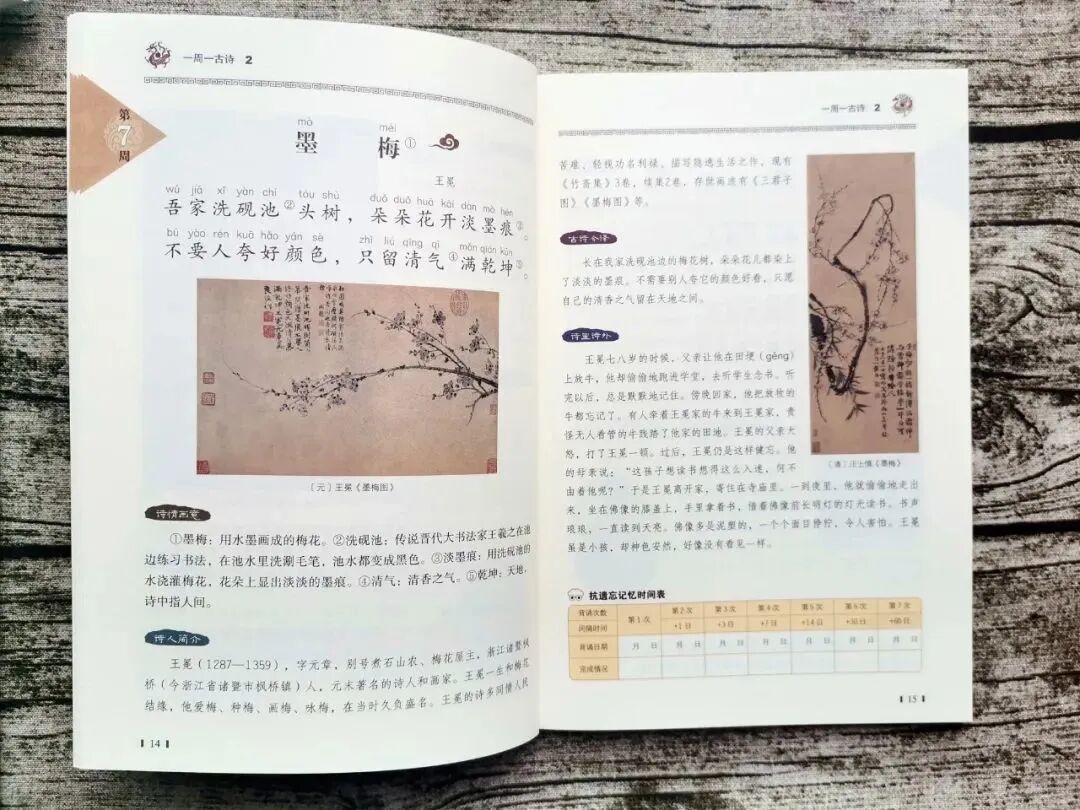 一周一古诗 2
第
7
周
mò méi
墨 梅①
王冕
wú jiā xǐ yàn chí tóu shù duǒ duǒ huā kāi dàn mò hén
吾家洗砚池②头树，朵朵花开淡墨痕③。
bú yào rén kuā hǎo yán sè zhǐ liú qīng qì mǎn qián kūn
不要人夸好颜色，只留清气④满乾坤⑤。
〔元〕王冕《墨梅图》
诗情画意
①墨梅：用水墨画成的梅花。②洗砚池：传说晋代大书法家王羲之在池
边练习书法，在池水里洗涮毛笔，池水都变成黑色。③淡墨痕：用洗砚池的
水浇灌梅花，花朵上显出淡淡的墨痕。④清气：清香之气。⑤乾坤：天地，
诗中指人间。
诗人简介
王冕（1287—1359），字元章，别号煮石山农、梅花屋主，浙江诸暨枫
桥（今浙江省诸暨市枫桥镇）人，元末著名的诗人和画家。王冕一生和梅花
结缘，他爱梅、种梅、画梅、咏梅，在当时久负盛名。王冕的诗多同情人民
14
一周一古诗 2
苦难、轻视功名利禄、描写隐逸生活之作，现有
《竹斋集》3卷，续集2卷，存世画迹有《三君子
图》《墨梅图》等。
古诗今译
长在我家洗砚池边的梅花树，朵朵花儿都染上
了淡淡的墨痕。不需要别人夸它的颜色好看，只愿
自己的清香之气留在天地之间。
诗里诗外
王冕七八岁的时候，父亲让他在田埂（gěng）
上放牛，他却偷偷地跑进学堂，去听学生念书。听
完以后，总是默默地记住。傍晚回家，他把放牧的
牛都忘记了。有人牵着王冕家的牛来到王冕家，责
怪无人看管的牛践踏了他家的田地。王冕的父亲大
怒，打了王冕一顿。过后，王冕仍是这样健忘。他
的母亲说：“这孩子想读书想得这么入迷，何不
由着他呢？”于是王冕离开家，寄住在寺庙里。一到夜里，他就偷偷地走出
来，坐在佛像的膝盖上，手里拿着书，借着佛像前长明灯的灯光读书。书声
琅琅，一直读到天亮。佛像多是泥塑的，一个个面目狰狞，令人害怕。王冕
虽是小孩，却神色安然，好像没有看见一样。
〔清〕汪士慎《墨梅》
抗遗忘记忆时间表
背诵次数 第1次 第2次 第3次 第4次 第5次 第6次 第7次
间隔时间 +1日 +3日 +7日 +14日 +30日 +60日
背诵日期 月 日 月 日 月 日 月 日 月 日 月 日 月 日
完成情况
15